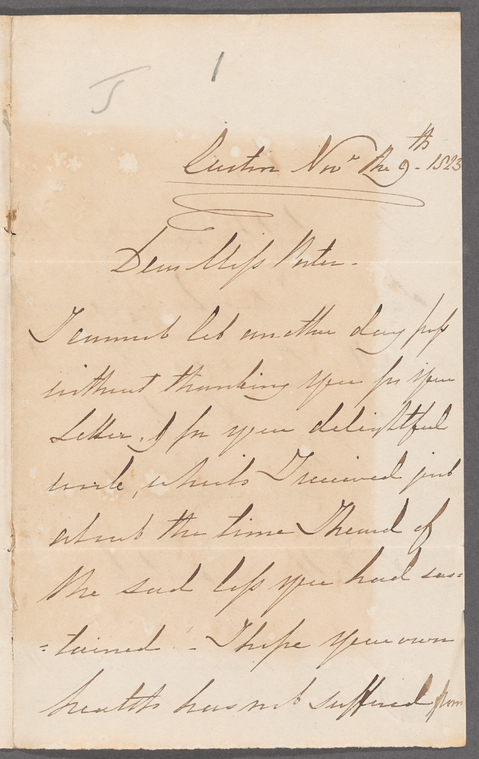 J 1
Nov.r the 9th - 1823
Dear Miss Porter -
I cannot let another day pass
without thanking you for your
Letter, & for your delightful
work, which I received just
about the time I heard of
the sad loss you had sus=
=tained - I hope your own
health has not suffered from